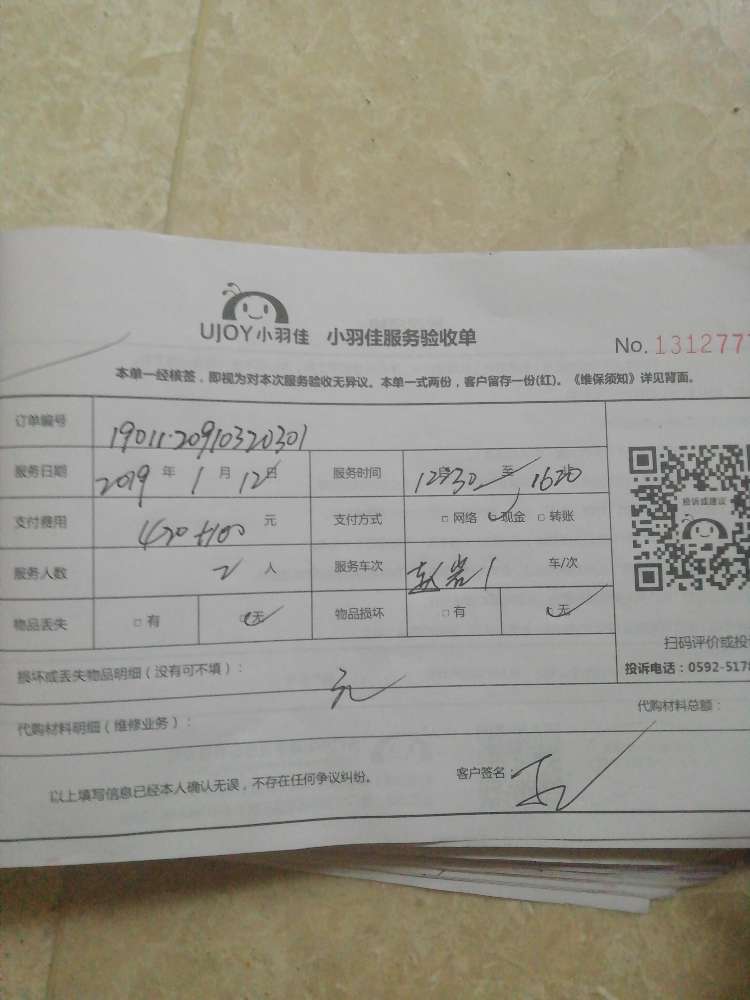 UJOY小羽佳 小羽佳服务验收单
No. 1312777
本单一经核签，即视为对本次服务验收无异议。本单一式两份，客户留存一份(红)。《维保须知》详见背面。
订单编号 1901120910320301
服务日期 2019 年 1 月 12 日 服务时间 12:30 至 1620
投诉或建议
支付费用 420+100 元 支付方式 □ 网络 ✓ 现金 □ 转账
服务人数 2 人 服务车次 1 车/次
物品丢失 □ 有 ✓ 无 物品损坏 □ 有 ✓ 无
扫码评价或投
投诉电话：0592-5178
损坏或丢失物品明细（没有可不填）： 无
代购材料明细（维修业务）： 代购材料总额：
以上填写信息已经本人确认无误，不存在任何争议纠纷。 客户签名：